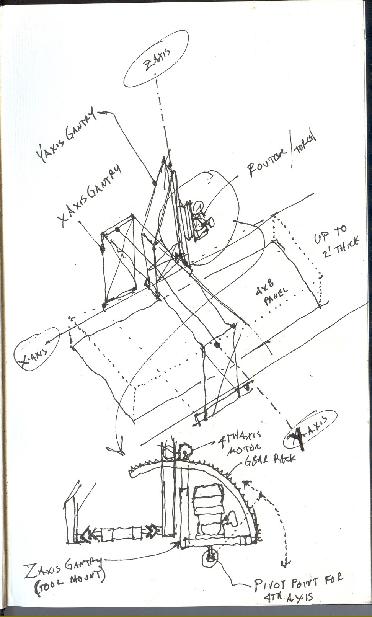 Z AXIS
Y AXIS GANTRY
X AXIS GANTRY
ROUTER / TORCH
UP TO
2' THICK
4x8
PANEL
X-AXIS
-AXIS
4TH AXIS
MOTOR
GEAR RACK
Z AXIS GANTRY
(TOOL MOUNT)
PIVOT POINT FOR
4TH AXIS